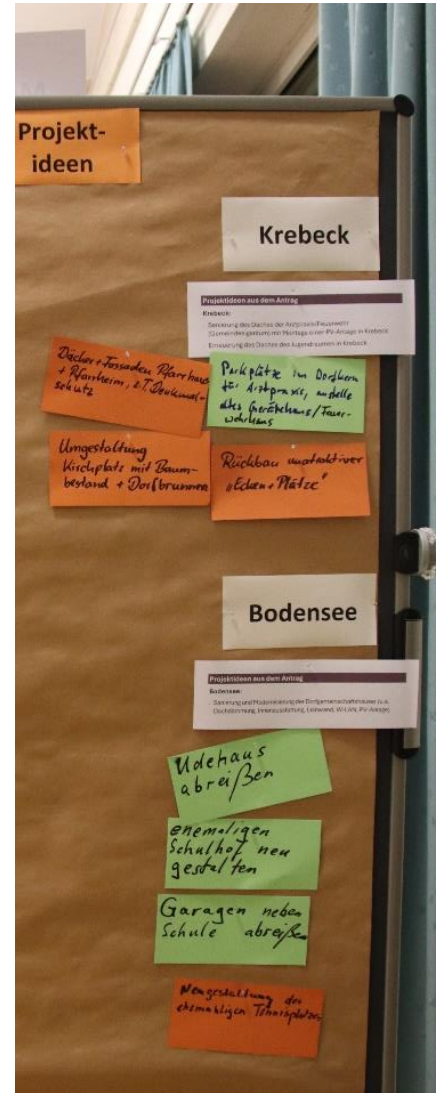 Projekt-
ideen
Krebeck
Projektideen aus dem Antrag
Krebeck:
Sanierung des Daches der Arztpraxis/Feuerwehr
(Gemeindeeigentum) mit Montage einer PV-Anlage in Krebeck
Erneuerung des Daches des Jugendraumes in Krebeck
Dächer + Fassaden Pfarrhaus
+ Pfarrheim, z.T. Denkmal-
schutz
Parkplätze im Dorfkern
für Arztpraxis, anstelle
altes Gerätehaus/Feuer-
wehrhaus
Umgestaltung
Kirchplatz mit Baum-
bestand + Dorfbrunnen
Rückbau unattraktiver
"Ecken + Plätze"
Bodensee
Projektideen aus dem Antrag
Bodensee:
Sanierung und Modernisierung des Dorfgemeinschaftshauses (u.a.
Dachdämmung, Innenausstattung, Leinwand, WLAN, PV-Anlage)
Udehaus
abreißen
ehemaligen
Schulhof neu
gestalten
Garagen neben
Schule abreißen
Neugestaltung des
ehemahligen Tennisplatzes